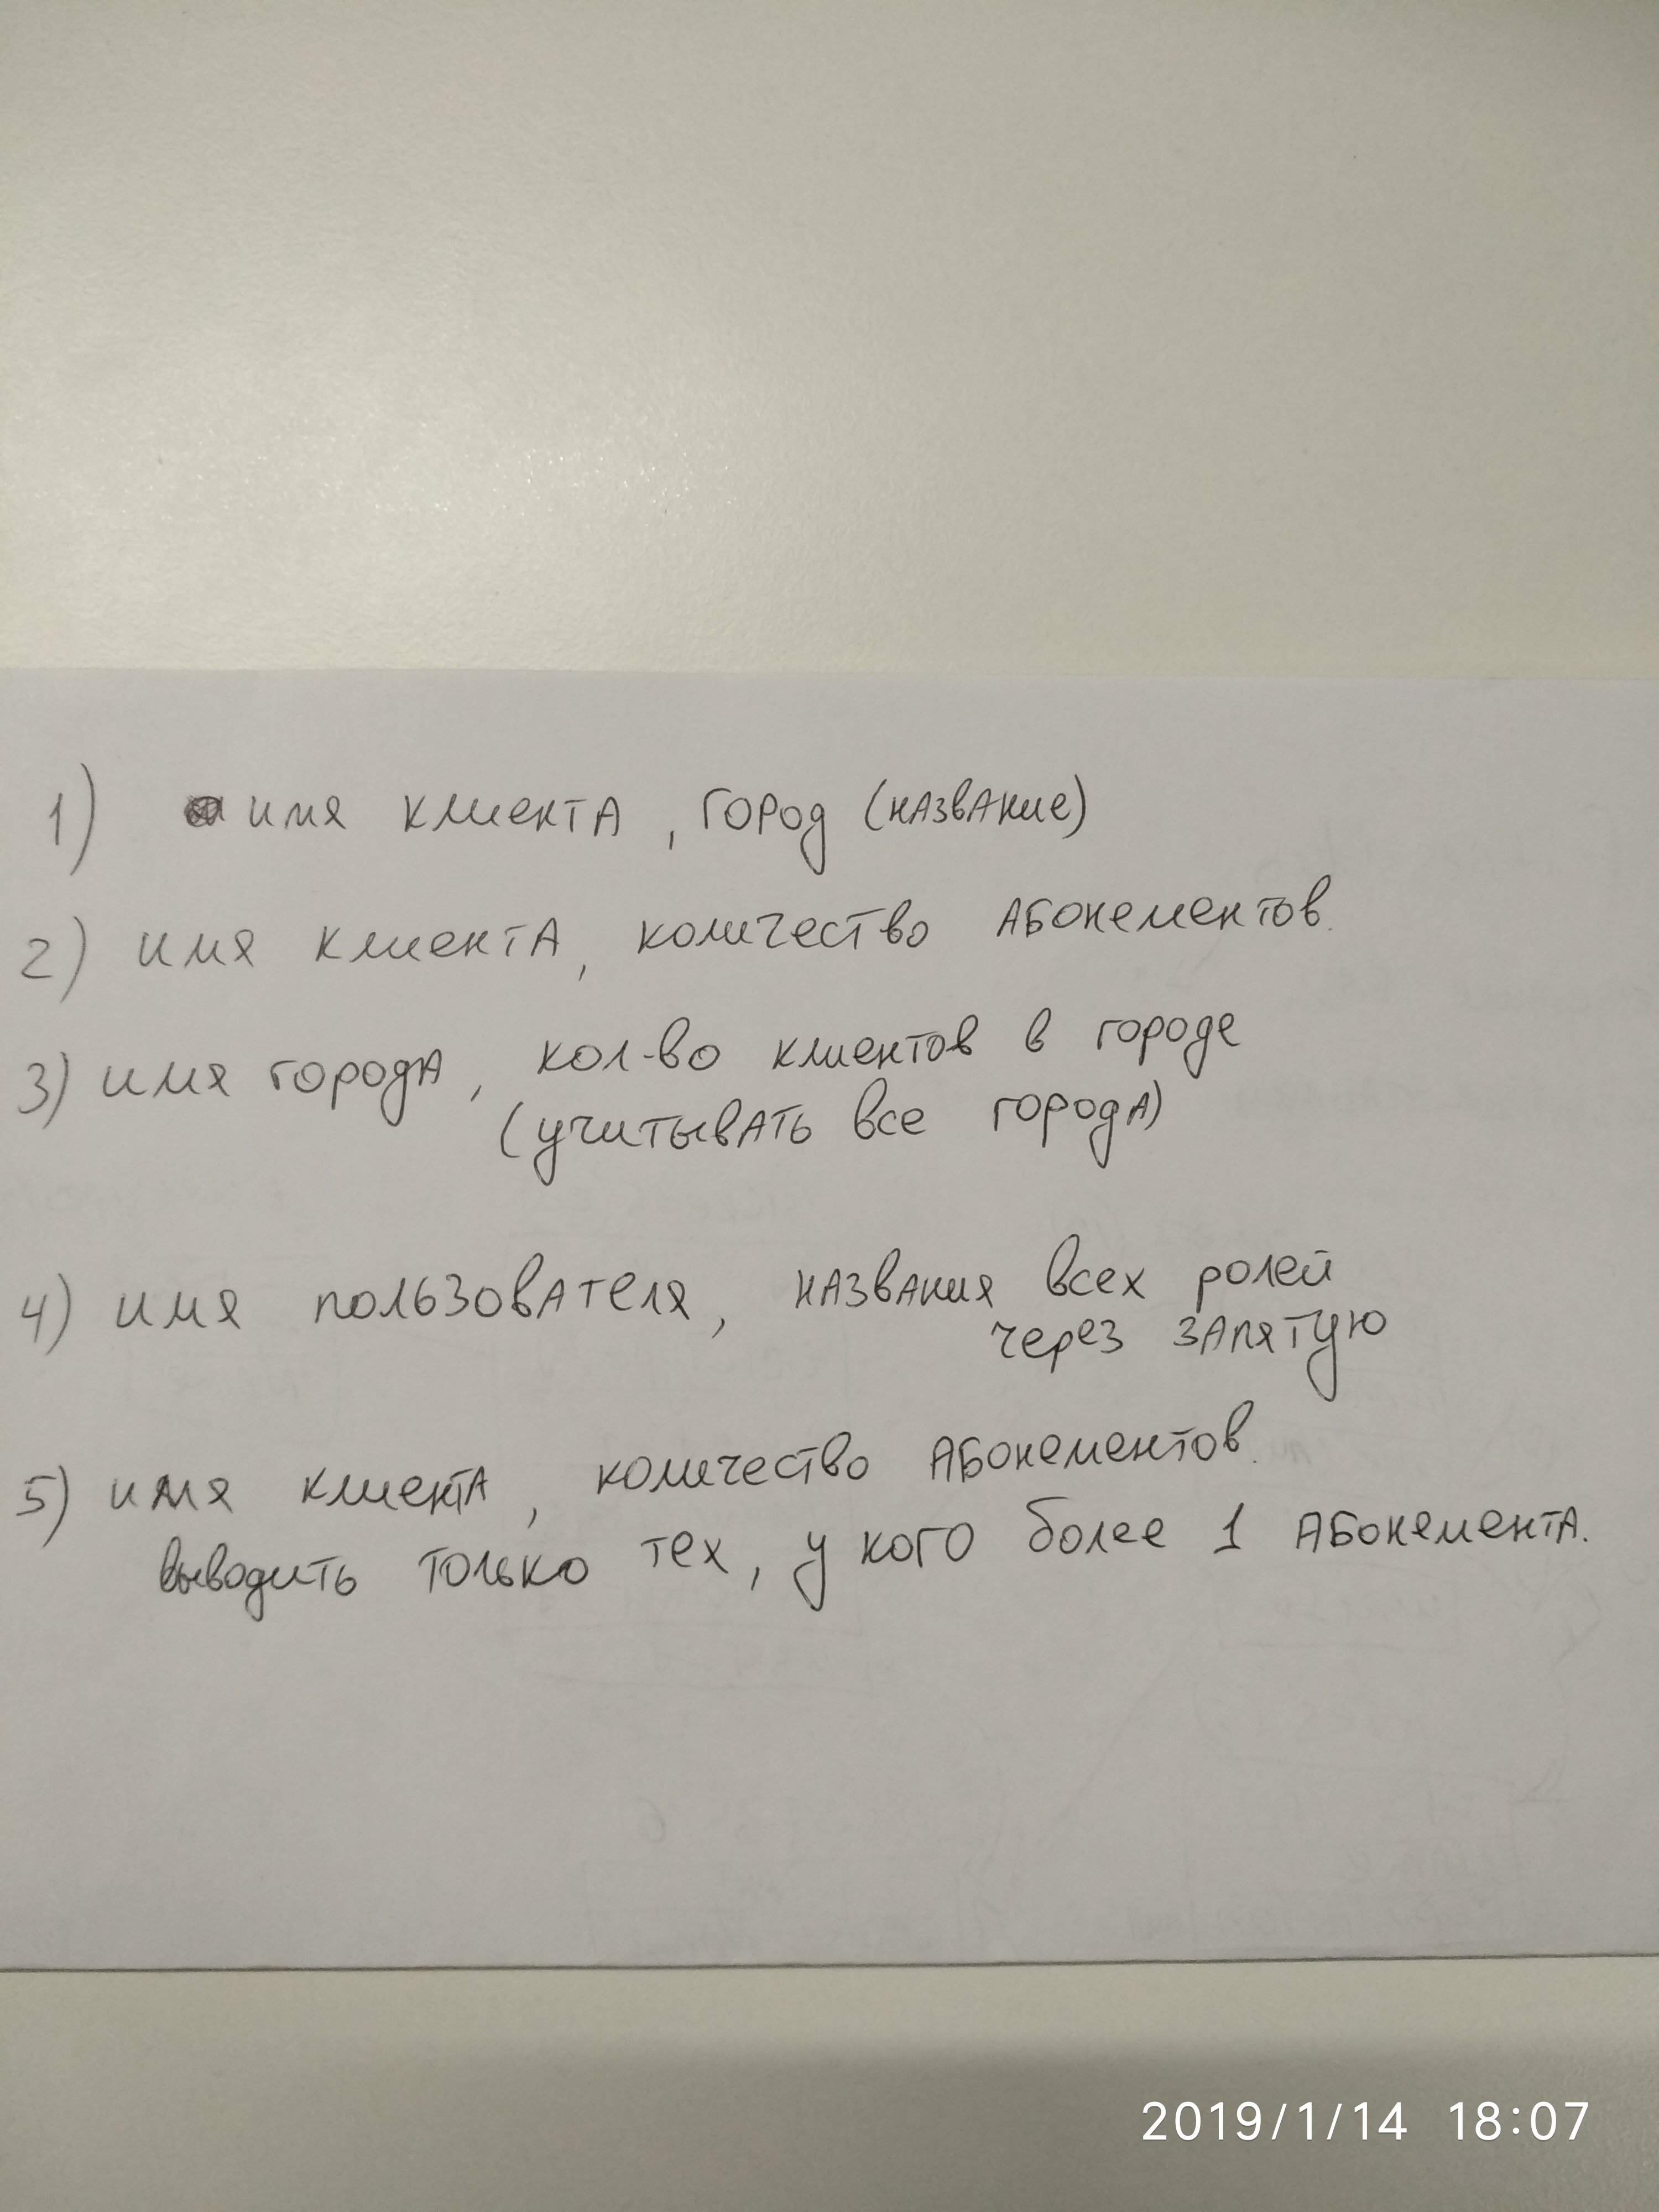 1) имя клиента, город (название)
2) имя клиента, количество абонементов.
3) имя города, кол-во клиентов в городе
(учитывать все города)
4) имя пользователя, названия всех ролей
через запятую
5) имя клиента, количество абонементов.
выводить только тех, у кого более 1 абонемента.
2019/1/14 18:07